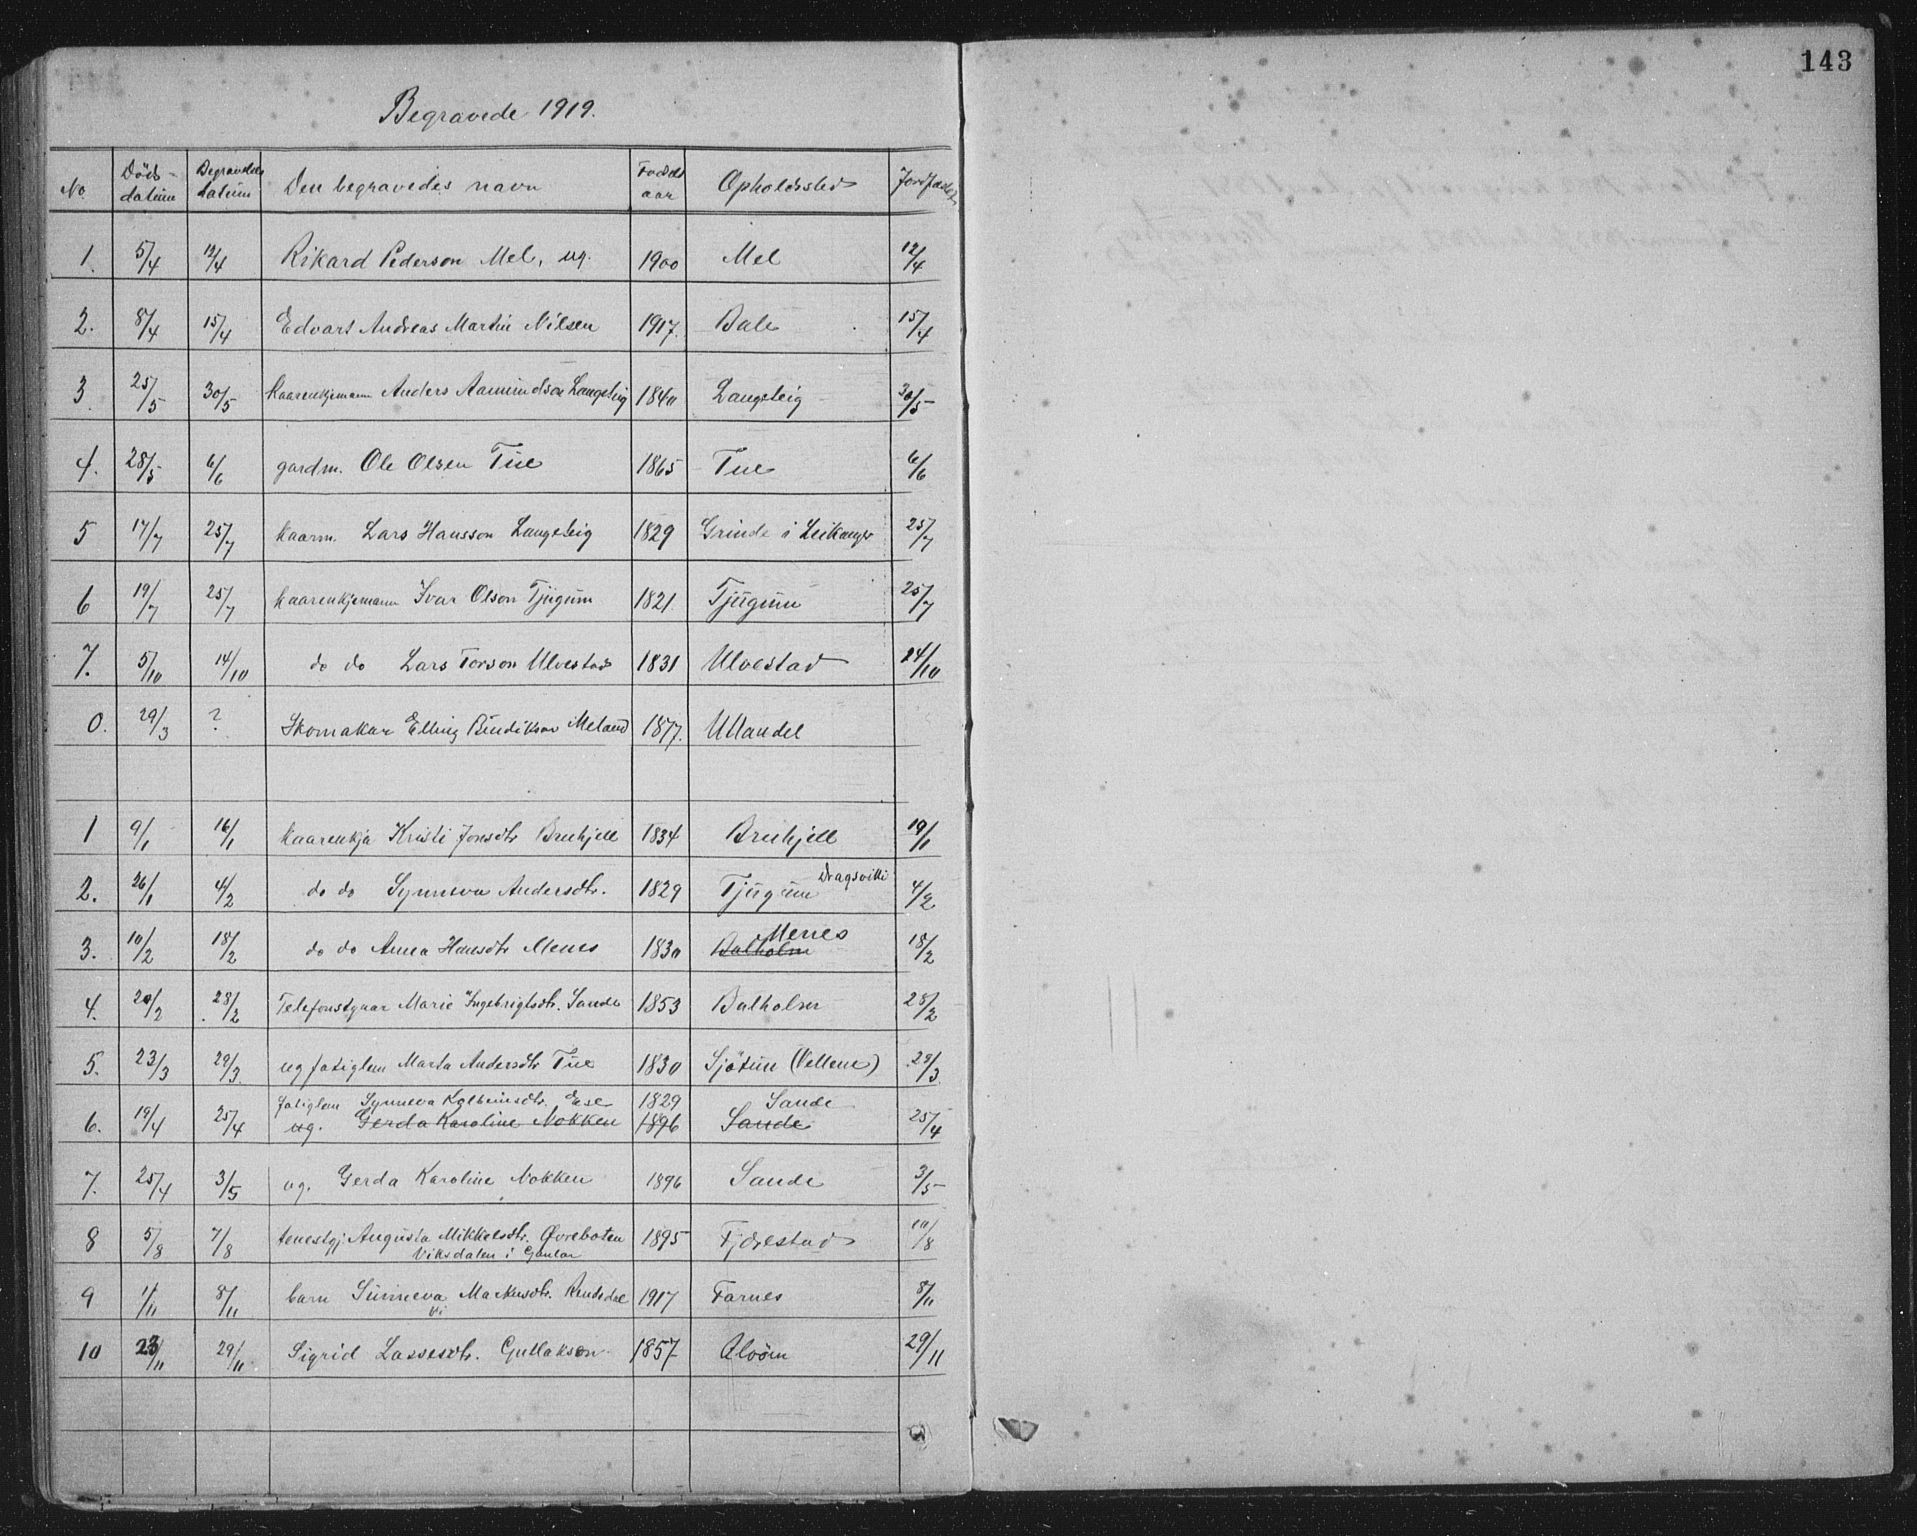 143
Begravede 1919.
No Døds-datum Begravelses datum Den begravedes navn Fødsels aar Opholdssted Jordfæstet
1. 5/4 12/4 Rikard Pederson Mel, ug. 1900 Mel 12/4
2. 8/4 15/4 Edvart Andreas Martin Nilsen 1917. Bale 15/4
3. 25/5 30/5 kaarenkjemann Anders Aamundson Langeteig 1840 Langeteig 30/5
4. 28/5 6/6 gardm. Ole Olsen Tue 1865 Tue 6/6
5 17/7 25/7 kaarm. Lars Hansson Langeteig 1829 Grinde i Leikanger 25/7
6 19/7 25/7 kaarenkjemann Ivar Olson Tjugum 1821. Tjugum 25/7
7. 5/10 14/10 do do Lars Torson Ulvestad 1831 Ulvestad 14/10
0. 29/3 ? Skomakar Elling Bendikson Meland 1877. Ullandel
1 9/1 16/1 kaarenkja Kristi Jonsdtr Brekjell 1834 Brekjell 19/1
2. 26/1 4/2 do do Synneva Andersdtr. 1829 Tjugum Dragsviki 4/2
3. 10/2 18/2 do do Anna Hansdtr Menes 1830 Balholm Menes 18/2
4. 20/2 28/2 Telefonstyrar Marie Ingebrigtsdtr. Sande 1853 Balholm 28/2
5. 23/3 29/3 ug fatiglem Marta Andersdtr Tue 1830 Sjøtun (Vellene) 29/3
fatiglem Synneva Kolbeinsdtr. Ese 1829 Sande
6. 19/4 25/4 ug. Gerda Karoline Nokken 1896 Sande 25/4
7. 25/4 3/5 ug. Gerda Karoline Nokken 1896 Sande 3/5
8 5/8 7/8 tenestgj Augusta Mikkelsdtr. Øvrebøten 1895 Fjærestad 10/8
Viksdalen i Gaular
9 1/11 8/11 barn Sunneva Markusdtr. Rendedal 1917 Farnes 8/11
10 23/11 29/11 Sigrid Lassesdtr. Gullakson 1857 Alvøen 29/11